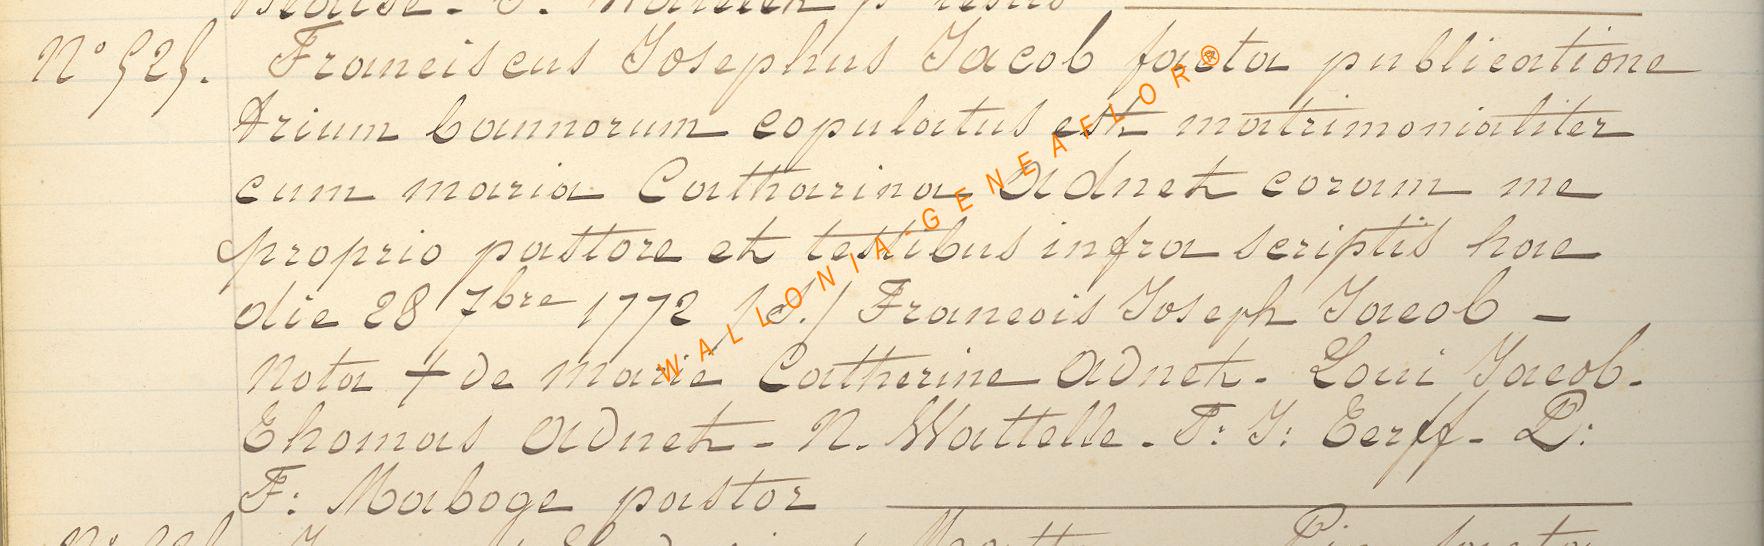 N° 525. Franciscus Josephus Jacob facta publicatione
trium bannorum copulatus est matrimonialiter
cum maria Catharina Adnet coram me
proprio pastore et testibus infra scriptis hac
die 28 7bre 1772 /S./ Francois Joseph Jacob -
Nota + de marie Catherine Adnet - Loui Jacob -
Thomas Adnet - N. Wattelle - F: J: Eerff - P:
F: Maboge pastor
WALLONIA-GENEAFLOR®